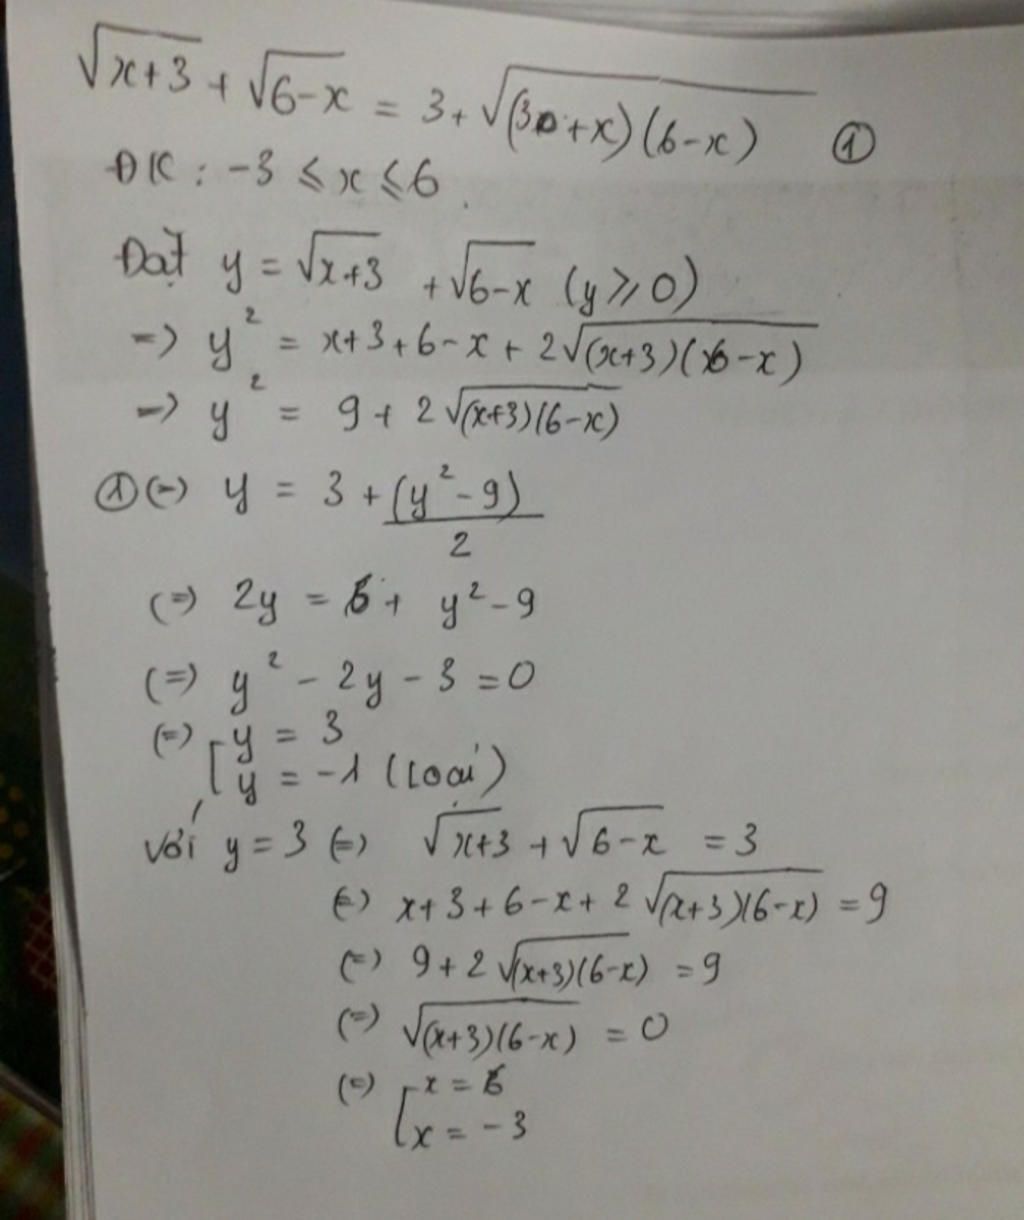 √(x+3) + √(6-x) = 3 + √((3+x)(6-x)) ①
ĐK : -3 ≤ x ≤ 6.
Đặt y = √(x+3) + √(6-x) (y ≥ 0)
=> y² = x+3+6-x + 2√((x+3)(6-x))
=> y² = 9 + 2√((x+3)(6-x))
① (=) y = 3 + (y²-9)/2
(=) 2y = 6 + y² - 9
(=) y² - 2y - 3 = 0
(=) [ y = 3
y = -1 (loại)
với y = 3 (=) √(x+3) + √(6-x) = 3
(=) x+3+6-x+2√((x+3)(6-x)) = 9
(=) 9+2√((x+3)(6-x)) = 9
(=) √((x+3)(6-x)) = 0
(=) [ x = 6
x = -3